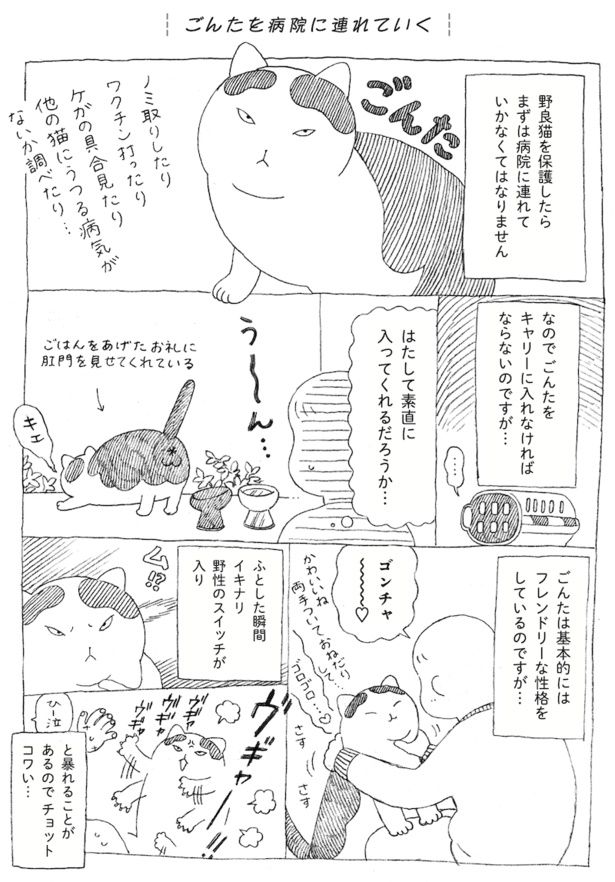 ごんたを病院に連れていく
野良猫を保護したら
まずは病院に連れて
いかなくてはなりません
ごんた
ノミ取りしたり
ワクチン打ったり
ケガの具合見たり
他の猫にうつる病気が
ないか調べたり…
なのでごんたを
キャリーに入れなければ
ならないのですが…
……
はたして素直に
入ってくれるだろうか…
う〜〜ん…
ごはんをあげたお礼に
肛門を見せてくれている
キエ
ごんたは基本的には
フレンドリーな性格を
しているのですが…
ゴンチャ
〜〜〜♡
かわいいね
両手ついておねだり
して…
ゴロゴロ…♡
さす
さす
ふとした瞬間
イキナリ
野性のスイッチが
入り
ム!?
ヴギャー!!
ヴギャ
ヴギャ
ひー泣
と暴れることが
あるのでチョット
コワい…